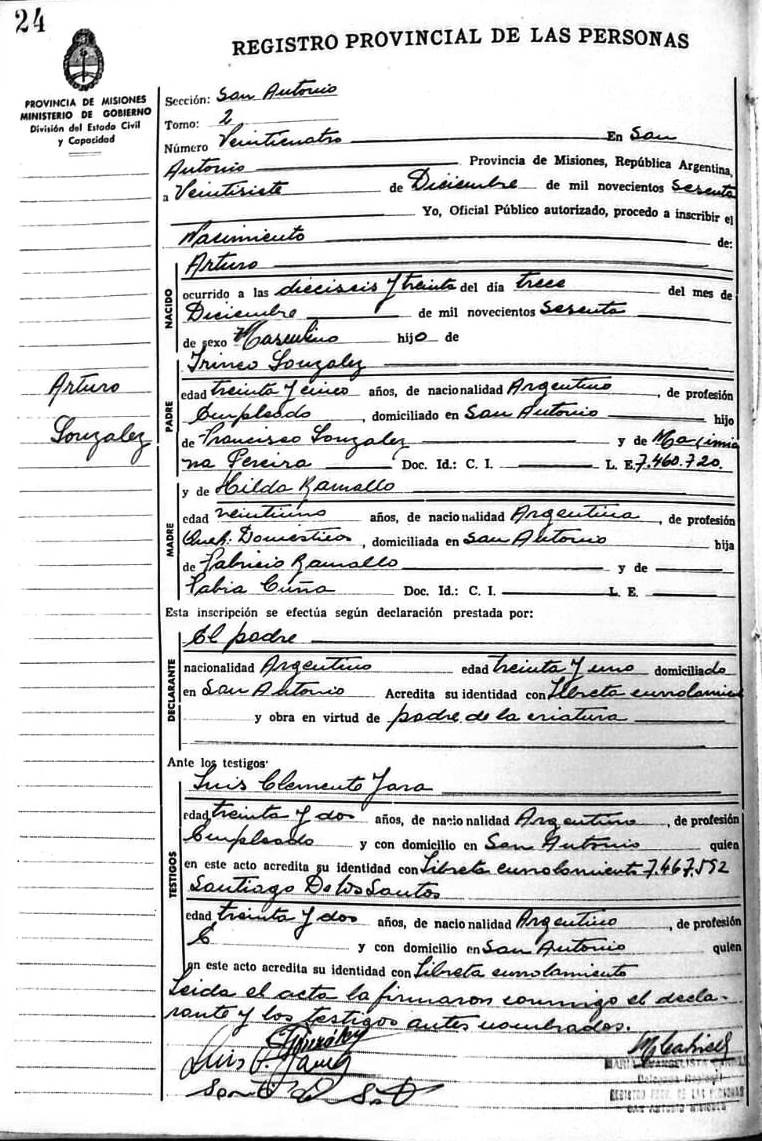 24
REGISTRO PROVINCIAL DE LAS PERSONAS
PROVINCIA DE MISIONES
MINISTERIO DE GOBIERNO
División del Estado Civil
y Capacidad
Sección: San Antonio
Tomo: 2
Número Veinticuatro En San
Antonio Provincia de Misiones, República Argentina,
a Veintisiete de Diciembre de mil novecientos Sesenta
Yo, Oficial Público autorizado, procedo a inscribir el
Nacimiento de:
NACIDO
Arturo
ocurrido a las dieciseis y treinta del día trece del mes de
Diciembre de mil novecientos Sesenta
de sexo Masculino hijo de
Arturo
Gonzalez
PADRE
Irineo Gonzalez
edad treinta y cinco años, de nacionalidad Argentino, de profesión
Empleado, domiciliado en San Antonio hijo
de Francisco Gonzalez y de Maximia
na Pereira Doc. Id.: C. I. L. E. 7.460.720
MADRE
y de Hilda Ramallo
edad veintiuno años, de nacionalidad Argentina, de profesión
Queh. Domésticos, domiciliada en San Antonio hija
de Fabricio Ramallo y de
Fabia Cuña Doc. Id.: C. I. L. E.
Esta inscripción se efectúa según declaración prestada por:
DECLARANTE
El padre
nacionalidad Argentino edad treinta y uno domiciliado
en San Antonio Acredita su identidad con Libreta enrolamien
y obra en virtud de padre de la criatura
Ante los testigos:
TESTIGOS
Luis Clemente Jara
edad treinta y dos años, de nacionalidad Argentino, de profesión
Empleado y con domicilio en San Antonio quien
en este acto acredita su identidad con Libreta enrolamiento 7.467.592
Santiago De los Santos
edad treinta y dos años, de nacionalidad Argentino, de profesión
E y con domicilio en San Antonio quien
en este acto acredita su identidad con Libreta enrolamiento
Leida el acta la firmaron conmigo el decla-
rante y los testigos antes nombrados.
REGISTRO PROV. DE LAS PERSONAS
SAN ANTONIO MISIONES